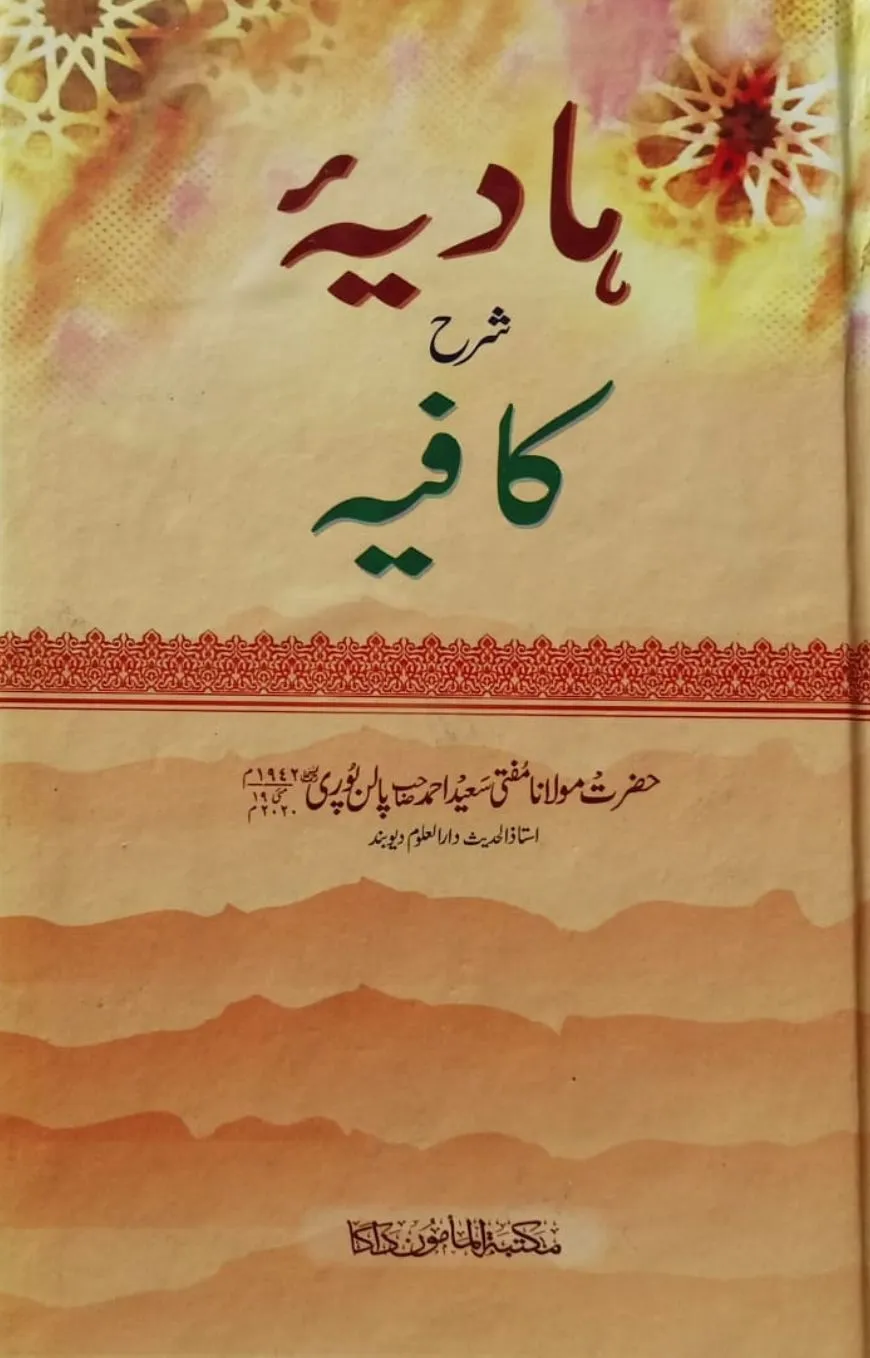 ہادیۂ
شرح
کافیہ
حضرت مولانا مفتی سعید احمد صاحب پالن پوری ۱۹۴۲م
۱۹ مئی ۲۰۲۰م
استاذ الحدیث دارالعلوم دیوبند
مكتبة المأمون داکا